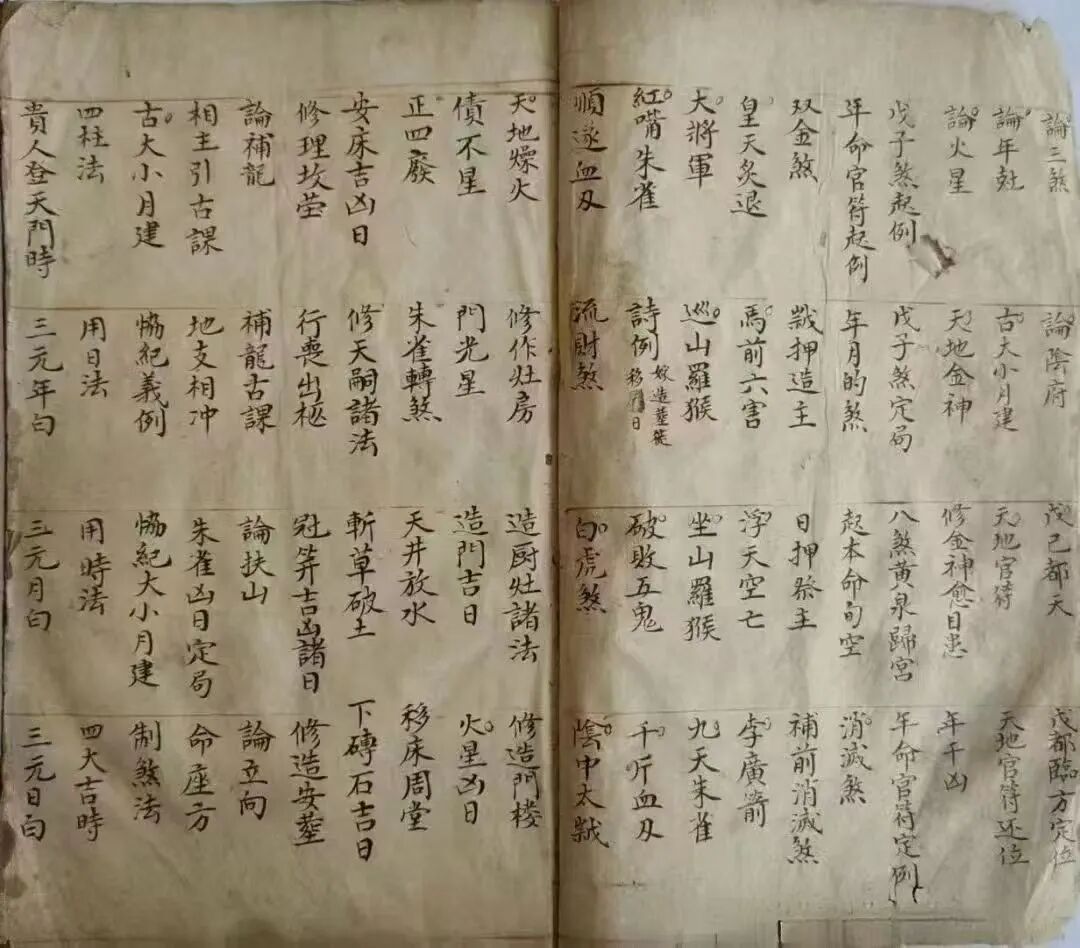 論三煞 論陰府 戊己都天 戊都臨方定位
論年尅 古大小月建 天地官符 天地官符还位
論火星 天地金神 修金神愈目患 年干凶
戊子煞起例 戊子煞定局 八煞黃泉歸宮 年命官符定例
年命官符起例 年月的煞 起本命旬空 消滅煞
双金煞 歲押造主 日押祭主 補前消滅煞
皇天炙退 馬前六害 浮天空亡 李廣箭
大將軍 巡山羅猴 坐山羅猴 九天朱雀
紅嘴朱雀 詩例 嫁造塟徙 移日 破敗五鬼 千斤血刄
順逆血刄 流財煞 白虎煞 陰中太歲
天地燥火 修作灶房 造厨灶諸法 修造門楼
債不星 門光星 造門吉日 火星凶日
正四廢 朱雀轉煞 天井放水 移床周堂
安床吉凶日 修天嗣諸法 斬草破土 下磚石吉日
修理坟茔 行喪出柩 冠笄吉凶諸日 修造安塟
論補龍 補龍古課 論扶山 論立向
相主引古課 地支相冲 朱雀凶日定局 命座方
古大小月建 恊紀義例 恊紀大小月建 制煞法
四柱法 用日法 用時法 四大吉時
貴人登天門時 三元年白 三元月白 三元日白